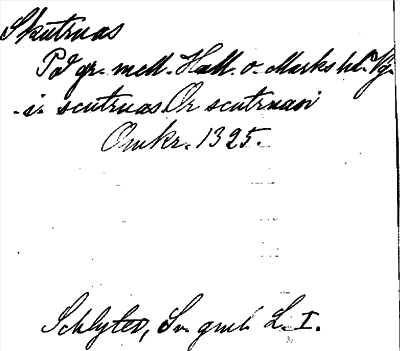 Skutruas
På gr. mell. Hall. o. Marks hd. Vg.
i scutruas Or scutruasi
Omkr. 1325.
Schlyter, Sv. gml. L. I.